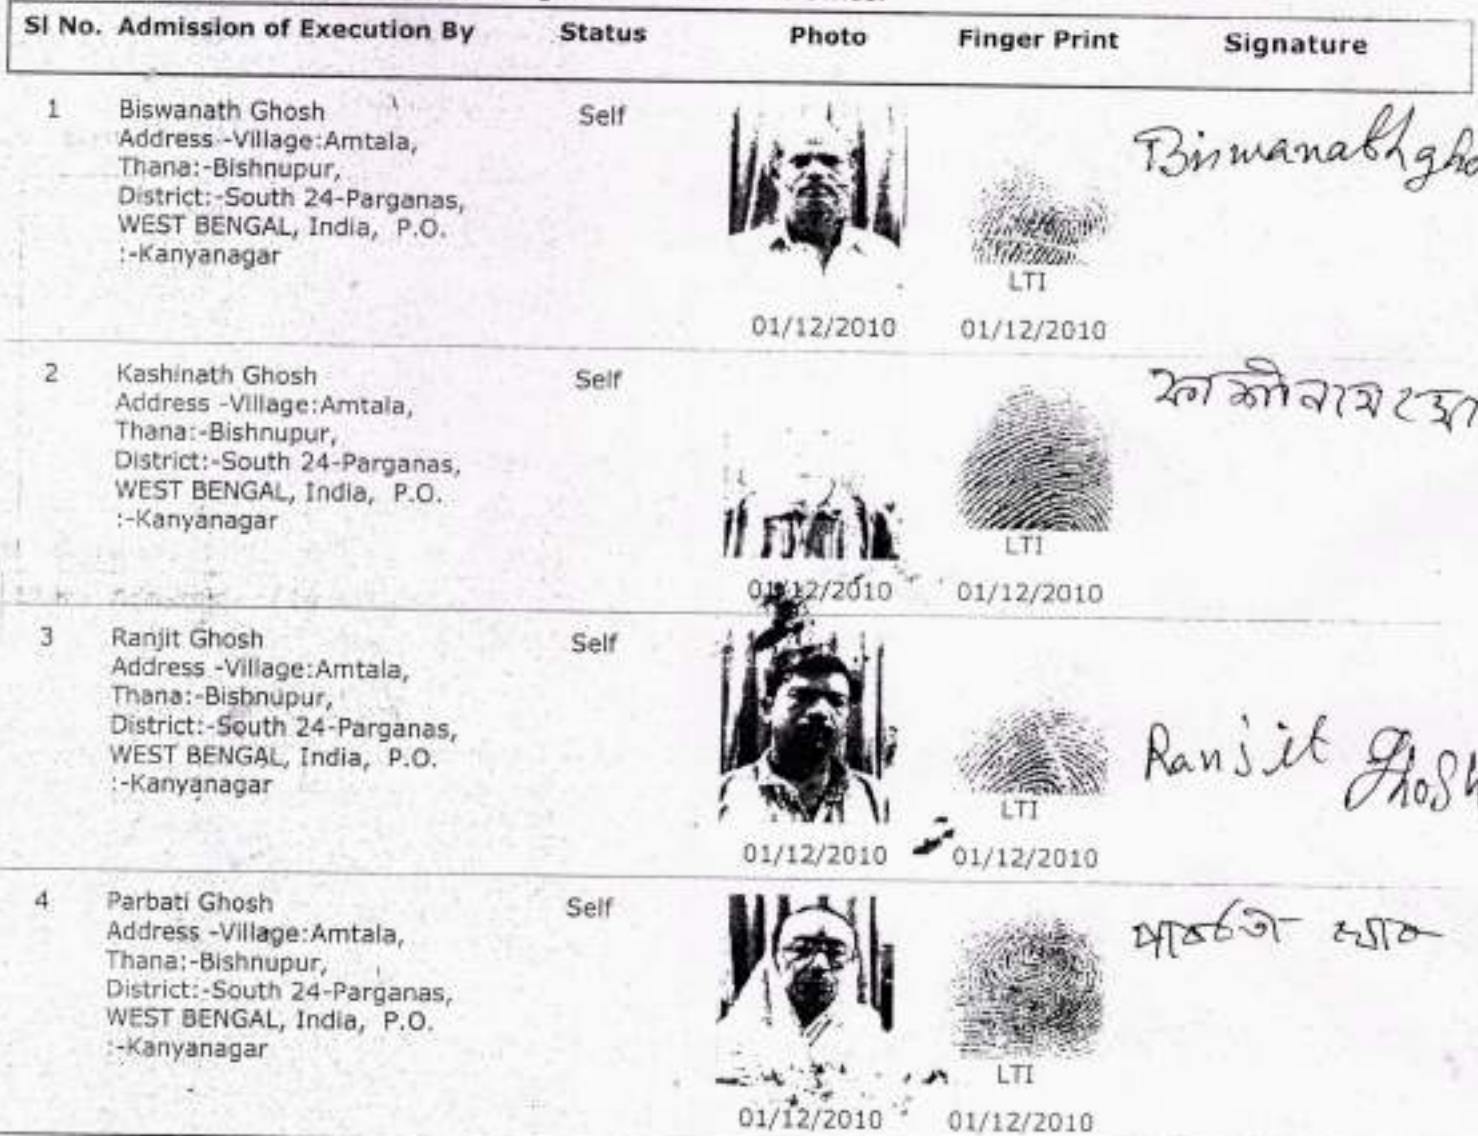 Sl No. Admission of Execution By Status Photo Finger Print Signature
1 Biswanath Ghosh Self
Address -Village:Amtala,
Thana:-Bishnupur,
District:-South 24-Parganas,
WEST BENGAL, India, P.O.
:-Kanyanagar
Biswanath Gho
LTI
01/12/2010 01/12/2010
2 Kashinath Ghosh Self
Address -Village:Amtala,
Thana:-Bishnupur,
District:-South 24-Parganas,
WEST BENGAL, India, P.O.
:-Kanyanagar
LTI
01/12/2010 01/12/2010
3 Ranjit Ghosh Self
Address -Village:Amtala,
Thana:-Bishnupur,
District:-South 24-Parganas,
WEST BENGAL, India, P.O.
:-Kanyanagar
Ranjit Ghosh
LTI
01/12/2010 01/12/2010
4 Parbati Ghosh Self
Address -Village:Amtala,
Thana:-Bishnupur,
District:-South 24-Parganas,
WEST BENGAL, India, P.O.
:-Kanyanagar
LTI
01/12/2010 01/12/2010